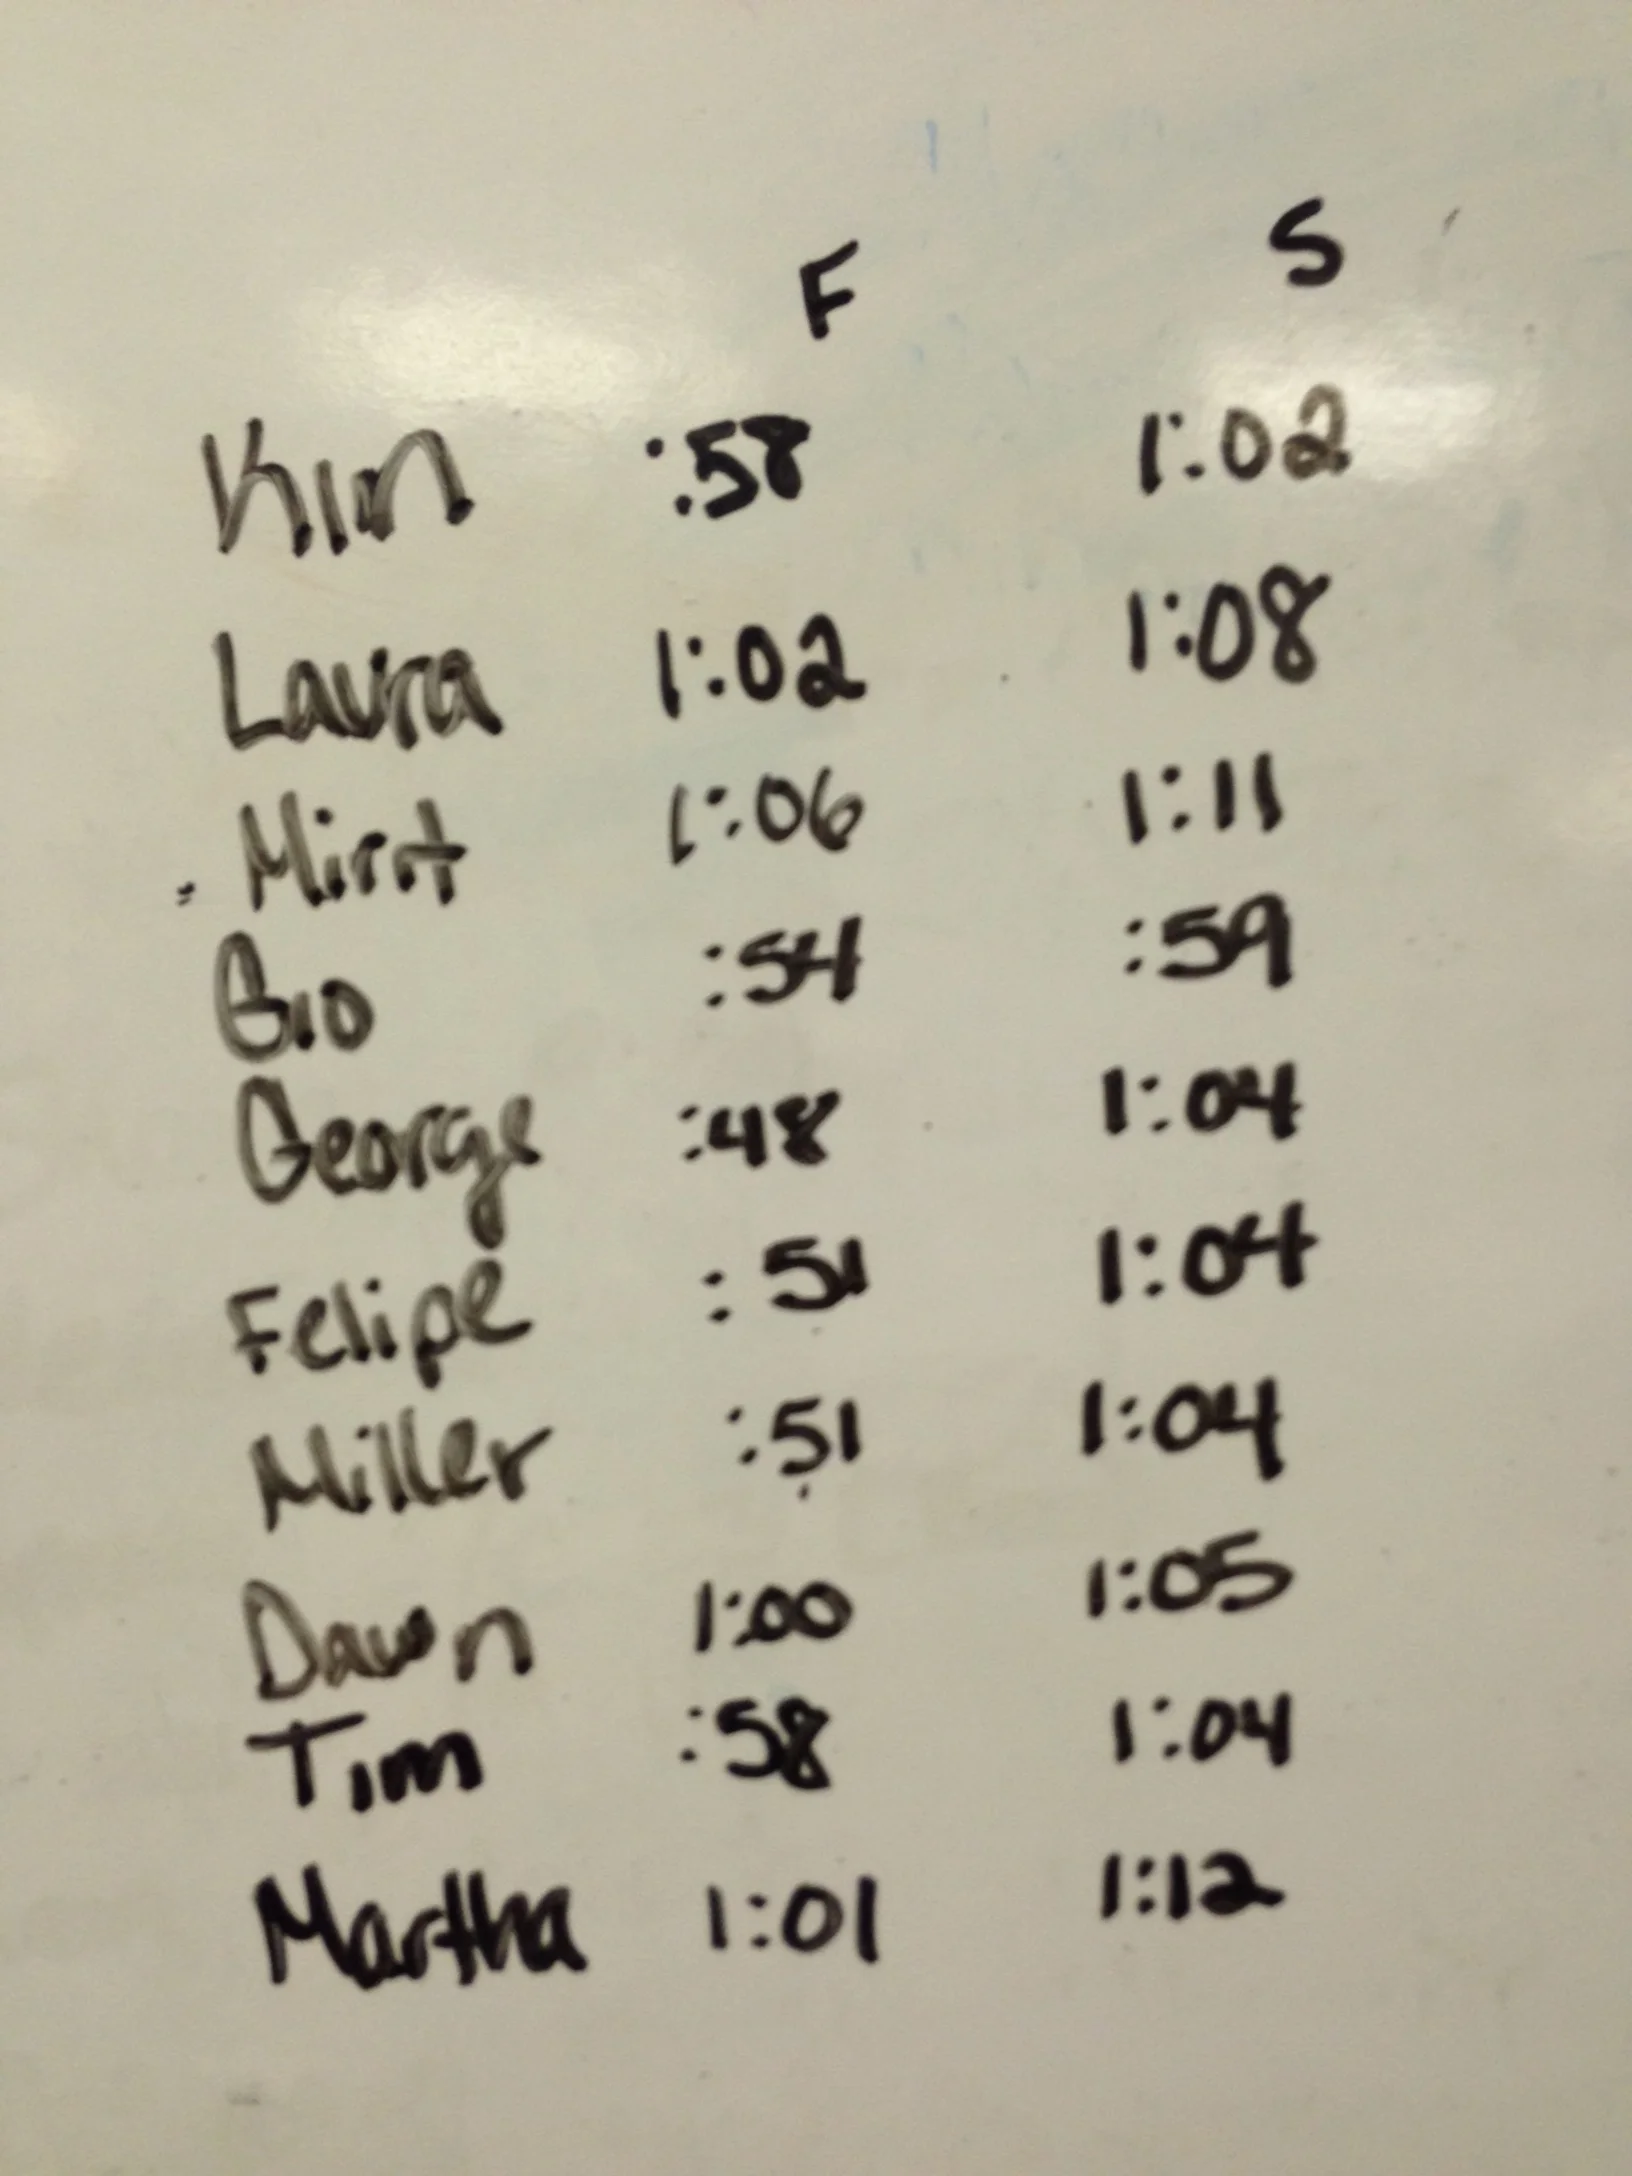 F S
Kim :58 1:02
Laura 1:02 1:08
Mirit 1:06 1:11
Gio :54 :59
George :48 1:04
Felipe :51 1:04
Miller :51 1:04
Dawn 1:00 1:05
Tim :58 1:04
Martha 1:01 1:12